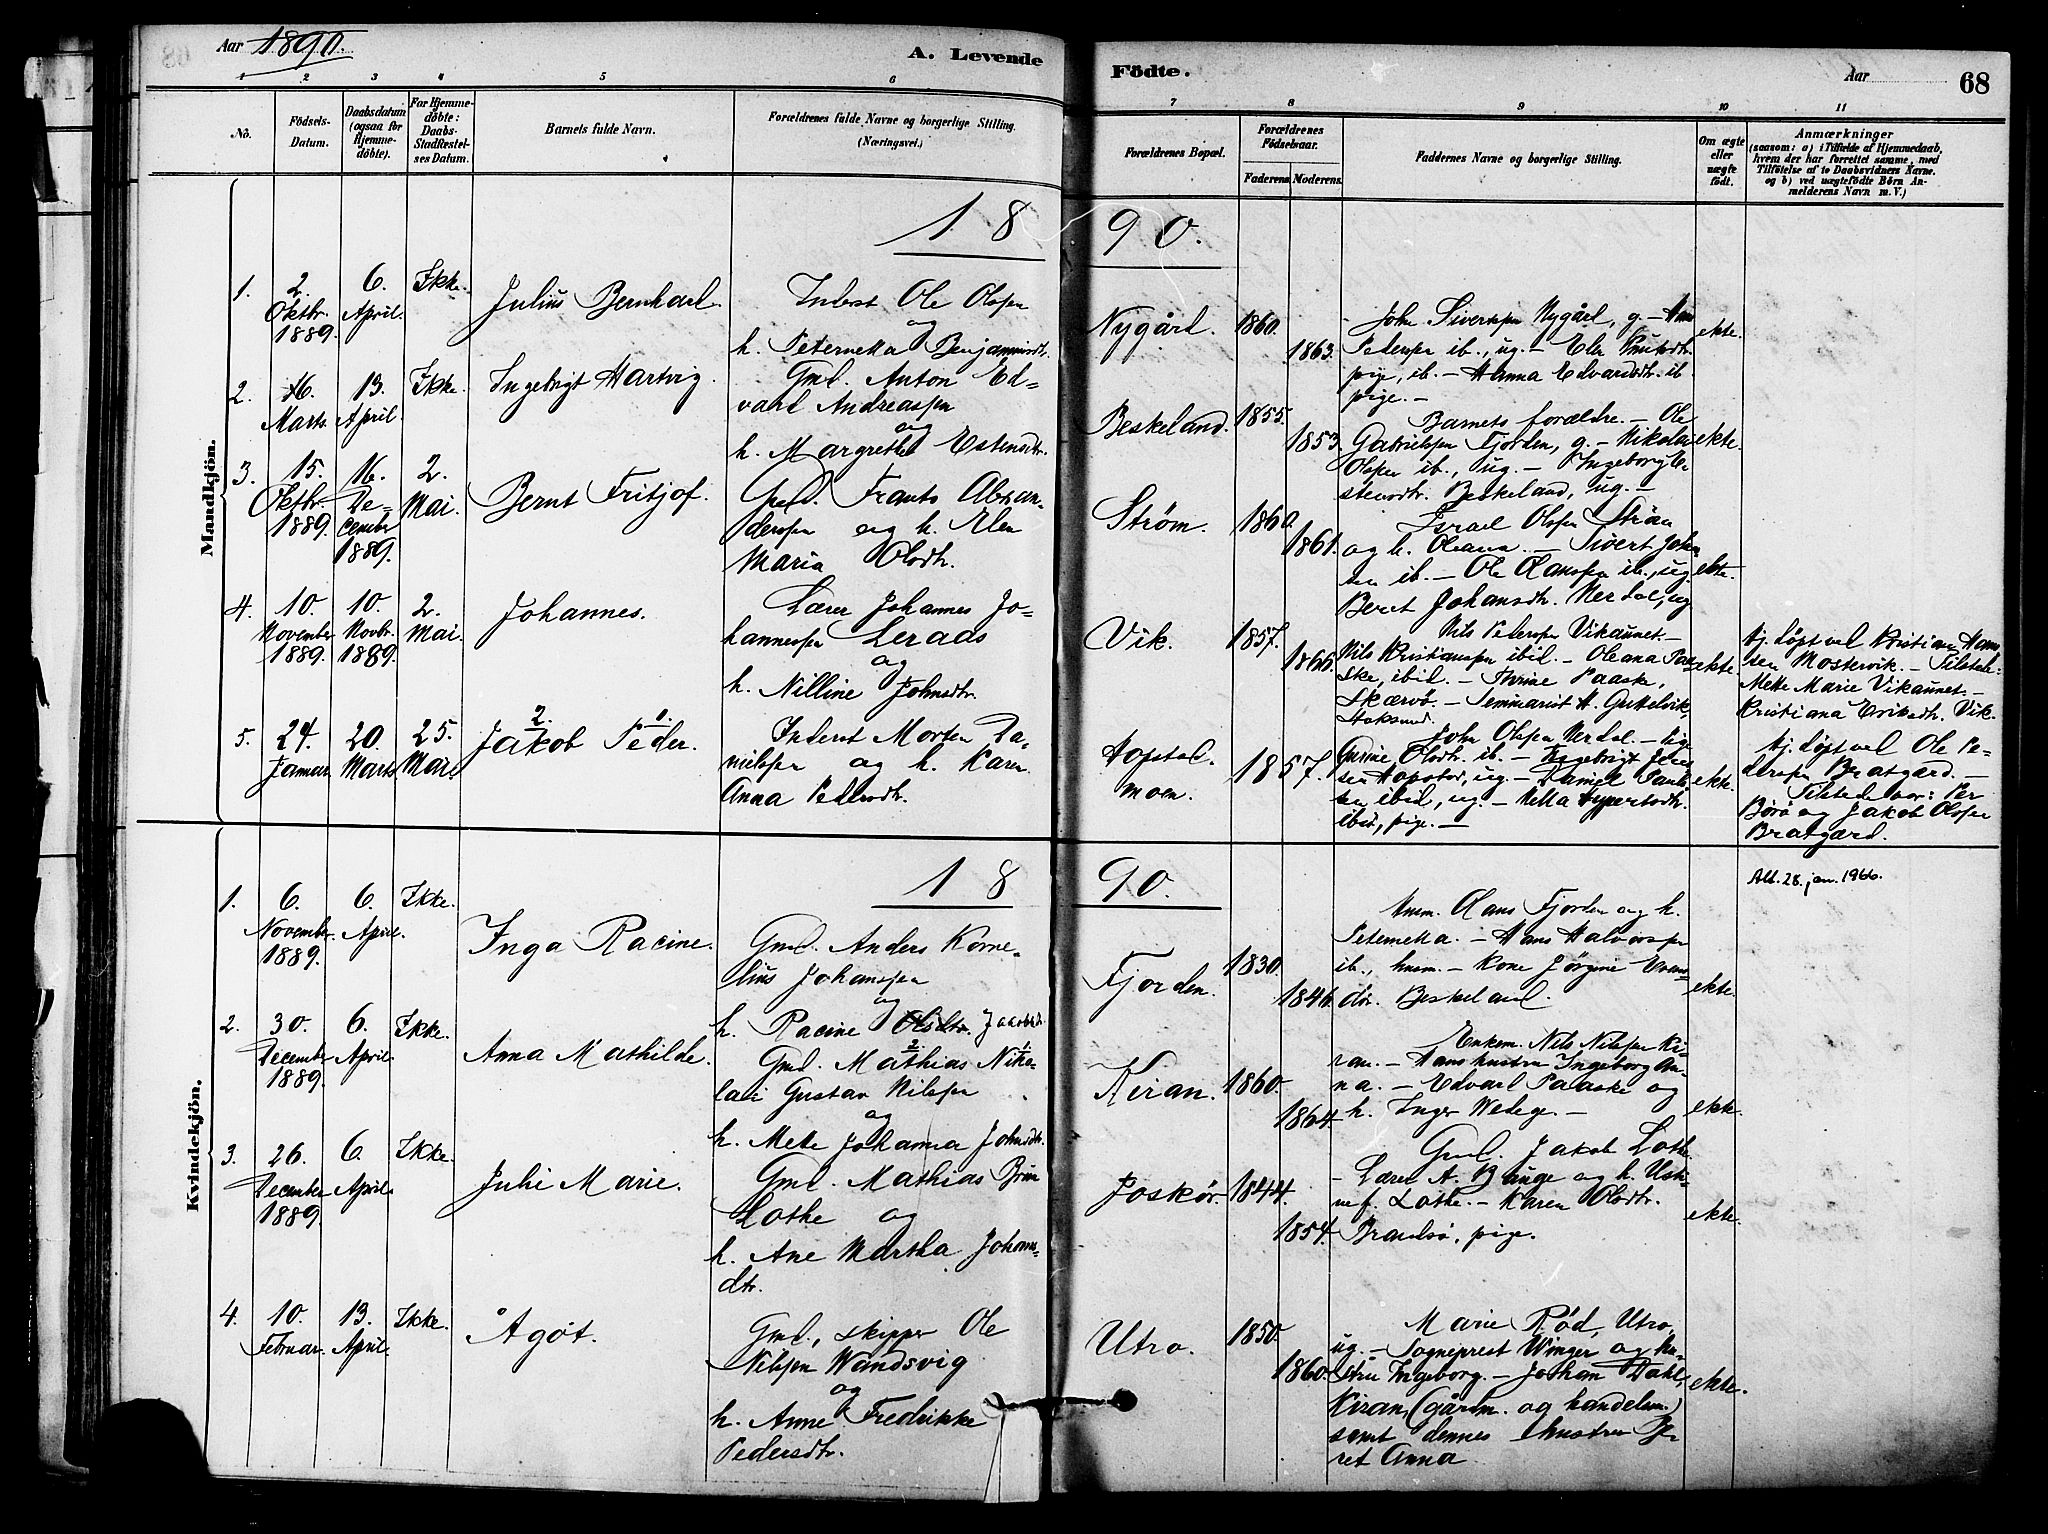 Aar 1890.
A. Levende
Födte.
Aar
68
1 2 3 4 5 6 7 8 9 10 11
No.
Födsels-
Datum.
Daabsdatum
(ogsaa for
Hjemme-
döbte).
For Hjemme-
döbte:
Daabs-
Stadfæstel-
ses Datum.
Barnets fulde Navn.
Forældrenes fulde Navne og borgerlige Stilling.
(Næringsvei.)
Forældrenes Bopæl.
Forældrenes
Födselsaar.
Faderens.
Moderens.
Faddernes Navne og borgerlige Stilling.
Om ægte
eller
uægte
födt.
Anmærkninger
(saasom: a) i Tilfælde af Hjemmedaab,
hvem der har forrettet samme, med
Tilföielse af to Daabsvidners Navne.
og b) ved uægtefödte Börn An-
melderens Navn m. V.)
Mandkjön.
18
90.
1.
2.
Oktbr.
1889.
6.
April.
Ikke.
Julius Bernhard.
Inderst Ole Olsen
og
h. Peternella Benjaminsdtr.
Nygård.
1860.
1863.
John Sivertsen Nygård, g. –
Pedersen ib., ug. – Elen Knutsdtr.
pige, ib. – Hanna Edvardsdtr. ib
pige. –
ekte.
2.
16.
Marts.
13.
April
Ikke.
Ingebrigt Hartvig.
Gmd. Anton Ed-
vard Andreassen
og
h. Margrethe Estensdtr.
Beskeland.
1855.
1853.
Barnets forældre. – Ole
Gabrielsen Fjorden, g. – Nikolai
Olsen ib., ug. – Ingeborg E-
stensdtr. Beskeland, ug. –
ekte.
3.
15.
Oktbr.
1889.
16.
De-
cember
1889.
2.
Mai.
Bernt Fritjof.
Gmd. Frants Alexan-
dersen og h. Elen
Maria Olsdtr.
Strøm.
1860.
1861.
Israel Olsen Strøm
og h. Oleana. – Sivert Johan-
sen ib. – Ole Olaussen ib., ug.
Beret Johansdtr. Nerdal, ug
ekte.
4.
10.
November
1889.
10.
Novbr.
1889.
2.
Mai.
Johannes.
Lærer Johannes Jo-
hannessen Leraas
og
h. Nilline Johnsdtr.
Vik.
1857.
1866.
Nils Pedersen Vikaunet. –
Nils Kristiansen ibid. – Oleana Paa-
ske, ibid. – Thrine Paaske,
Skærvø. – Seminarist H. Guttelvik,
Stoksund.
ekte.
Hj. døpt ved Kristian Han-
sen Mostervik. – Tilstede:
Mette Marie Vikaunet. –
Kristiana Eriksdtr. Vik.
5.
24.
Januar.
20.
Marts
25.
Mai
2. 1.
Jakob Peder.
Inderst Morten Da-
nielsen og h. Karen
Anna Pedersdtr.
Hopstad-
moen.
1857.
John Olsen Nerdal. – Pige
Gurine Olsdtr. ib. – Ingebrigt Jen-
sen Hopstad, ug. – Daniel Paul-
sen ibid, ug. –
ibid, pige. –
ekte.
Hj. døpt ved Ole Pe-
dersen Bratgærd. –
Tilstede var: Per
Børø og Jakob Olsen
Bratgærd.
Kvindekjön.
18
90.
1.
6.
November
1889.
6.
April.
Ikke.
Inga Racine.
Gmd. Anders Korne-
lius Johansen
og
h. Racine Olsdtr. Jakobsd.
Fjorden.
1830.
1846.
Husm. Hans Fjorden og h.
Peternella. – Hans Halvorsen
ib., husm. – Kone Jørgine Evens-
dtr. Beskeland.
ekte.
Att. 28. jan. 1966.
2.
30.
December
1889.
6.
April.
Ikke.
Anna Mathilde.
2 1
Gmd. Mathias Niko-
lai Gustav Nilsen
og
h. Mette Johanna Johnsdtr.
Kiran.
1860.
1864.
Enkem. Nils Nilsen Ki-
ran. – Hans hustru Ingeborg An-
na. – Edvard Paaske og
h. Inger Wedege. –
ekte.
3.
26.
December
1889.
6.
April.
Ikke.
Julie Marie.
Gmd. Mathias Brun
Lothe og
h. Ane Martha Johans-
dtr.
Joskør.
1844.
1854.
Gmd. Jakob Lothe
– Lærer A. Bauge og h. Usti-
ne f. Lothe. – Karen Olsdtr.
Brandsø, pige.
ekte.
4.
10.
Februar.
13.
April.
Ikke.
Ågot.
Gmd., skipper Ole
Nilsen Wandsvig
og
h. Anne Fredrikke
Pedersdtr.
Utro.
1850.
1860.
Marie Rød, Utro,
ug. – Sogneprest Winger og hu-
stru Ingeborg. – Johan Dahl,
Kiran, (gårdm. og handelsm.)
samt dennes hustru Be-
ret Anna
ekte.